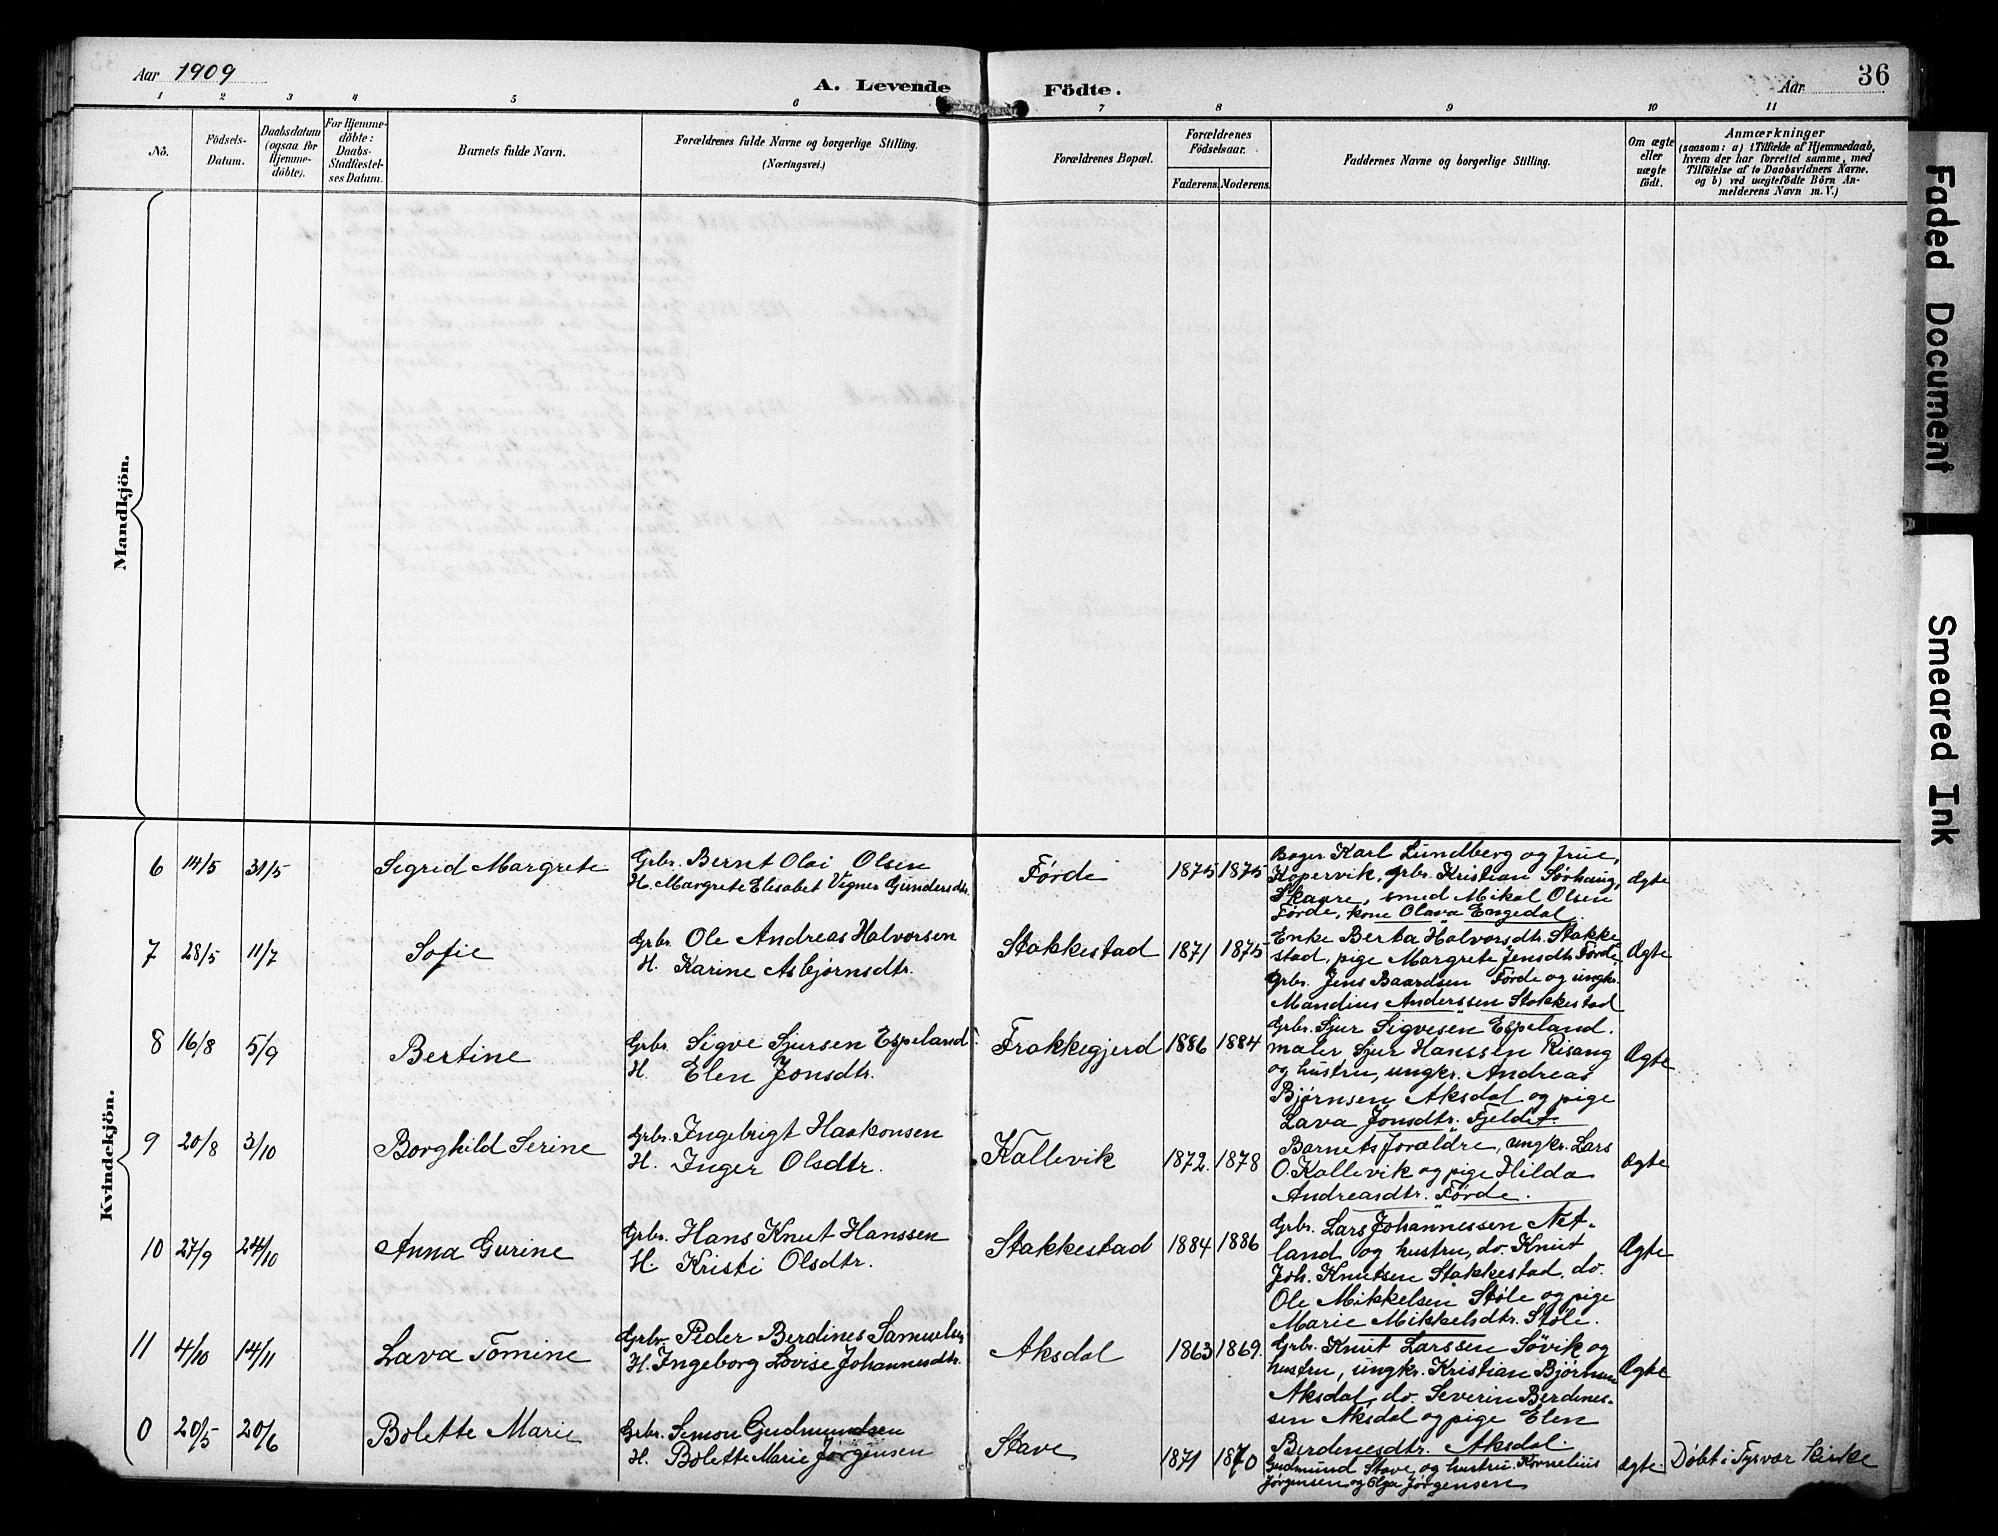 Aar 1909
A. Levende Födte.
Aar
36
1 2 3 4 5 6 7 8 9 10 11
No.
Födsels-Datum.
Daabsdatum (ogsaa for Hjemme-döbte).
For Hjemme-döbte: Daabs-Stadfæstel-ses Datum.
Barnets fulde Navn.
Forældrenes fulde Navne og borgerlige Stilling. (Næringsvei.)
Forældrenes Bopæl.
Forældrenes Födselsaar.
Faderens. Moderens.
Faddernes Navne og borgerlige Stilling.
Om ægte eller uægte födt.
Anmærkninger
(saasom: a) i Tilfælde af Hjemmedaab,
hvem der har forrettet samme, med
Tilföielse af to Daabsvidners Navne.
og b) ved uægtefödte Börn An-
melderens Navn m. V.)
Mandkjön.
Kvindekjön.
6 14/5 31/5 Sigrid Margrete
Grbr. Bernt Olai Olsen
H. Margrete Elisabet Vigner Gundersdtr.
Förde 1875 1875
Bager Karl Lundberg og frue,
Kopervik, grbr. Kristian Sørhaug,
Skaare, smed Mikal Olsen
Førde, kone Olava Engedal
Ægte
7 28/5 11/7 Sofie
Grbr. Ole Andreas Halvorsen
H. Karine Asbjørnsdtr.
Stakkestad 1871 1875
Enke Berta Halvorsdtr. Stakke
stad, pige Margrete Jensdtr. Førde,
Grbr. Jens Baardsen Førde og ungkr.
Mandius Anderssen Stakkestad
Ægte
8 16/8 5/9 Bertine
Grbr. Sigve Sjursen Espeland
H. Elen Jonsdtr.
Frakkegjerd 1886 1884
Grbr. Sjur Sigvesen Espeland.
maler Sjur Hanssen Risang
og hustru, ungkr. Andreas
Bjørnsen Aksdal og pige
Lava Jonsdtr. Fjeldet.
Ægte
9 20/8 3/10 Borghild Serine
Grbr. Ingebrigt Haakonsen
H. Inger Olsdtr.
Kallevik 1872. 1878
Barnets forældre, ungkr. Lars
O. Kallevik og pige Hilda
Andreasdtr. Førde.
Ægte
10 27/9 24/10 Anna Gurine
Grbr. Hans Knut Hanssen
H. Kristi Olsdtr.
Stakkestad 1884 1886
Grbr. Lars Johannessen Net-
land og hustru, do. Knut
Joh. Knutsen Stakkestad, do.
Ole Mikkelsen Støle og pige
Marie Mikkelsdtr. Støle.
Ægte
11 4/10 14/11 Lava Tomine
Grbr. Peder Berdines Samuelsen
H. Ingeborg Lovise Johannesdtr.
Aksdal 1863 1869.
Grbr. Knut Larssen Søvik og
hustru, ungkr. Kristian Bjørnsen
Aksdal, do. Severin Berdines-
sen Aksdal og pige Elen
Berdenesdtr. Aksdal.
Ægte
0 20/5 20/6 Bolette Marie
Grbr. Simon Gudmundsen
H. Bolette Marie Jørgensen
Stave 1871 1870
Gudmund Stave og hustru. Kornelius
Jørgensen og Olga Jørgensen
ægte.
Døbt i Tysvær Kirke
Faded Document
Smeared Ink